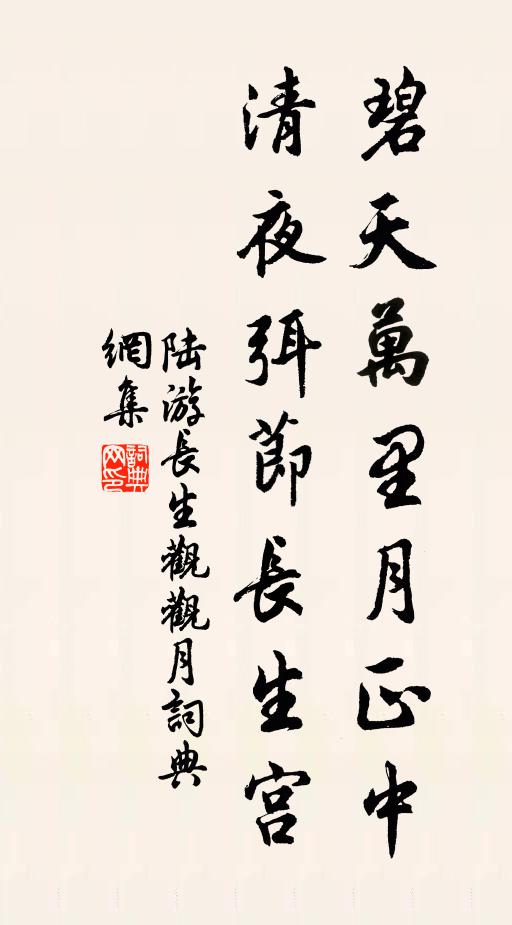 碧天萬里月正中
清夜弭節長生宮
陆游長生觀觀月詞典
網集
詞典
网印